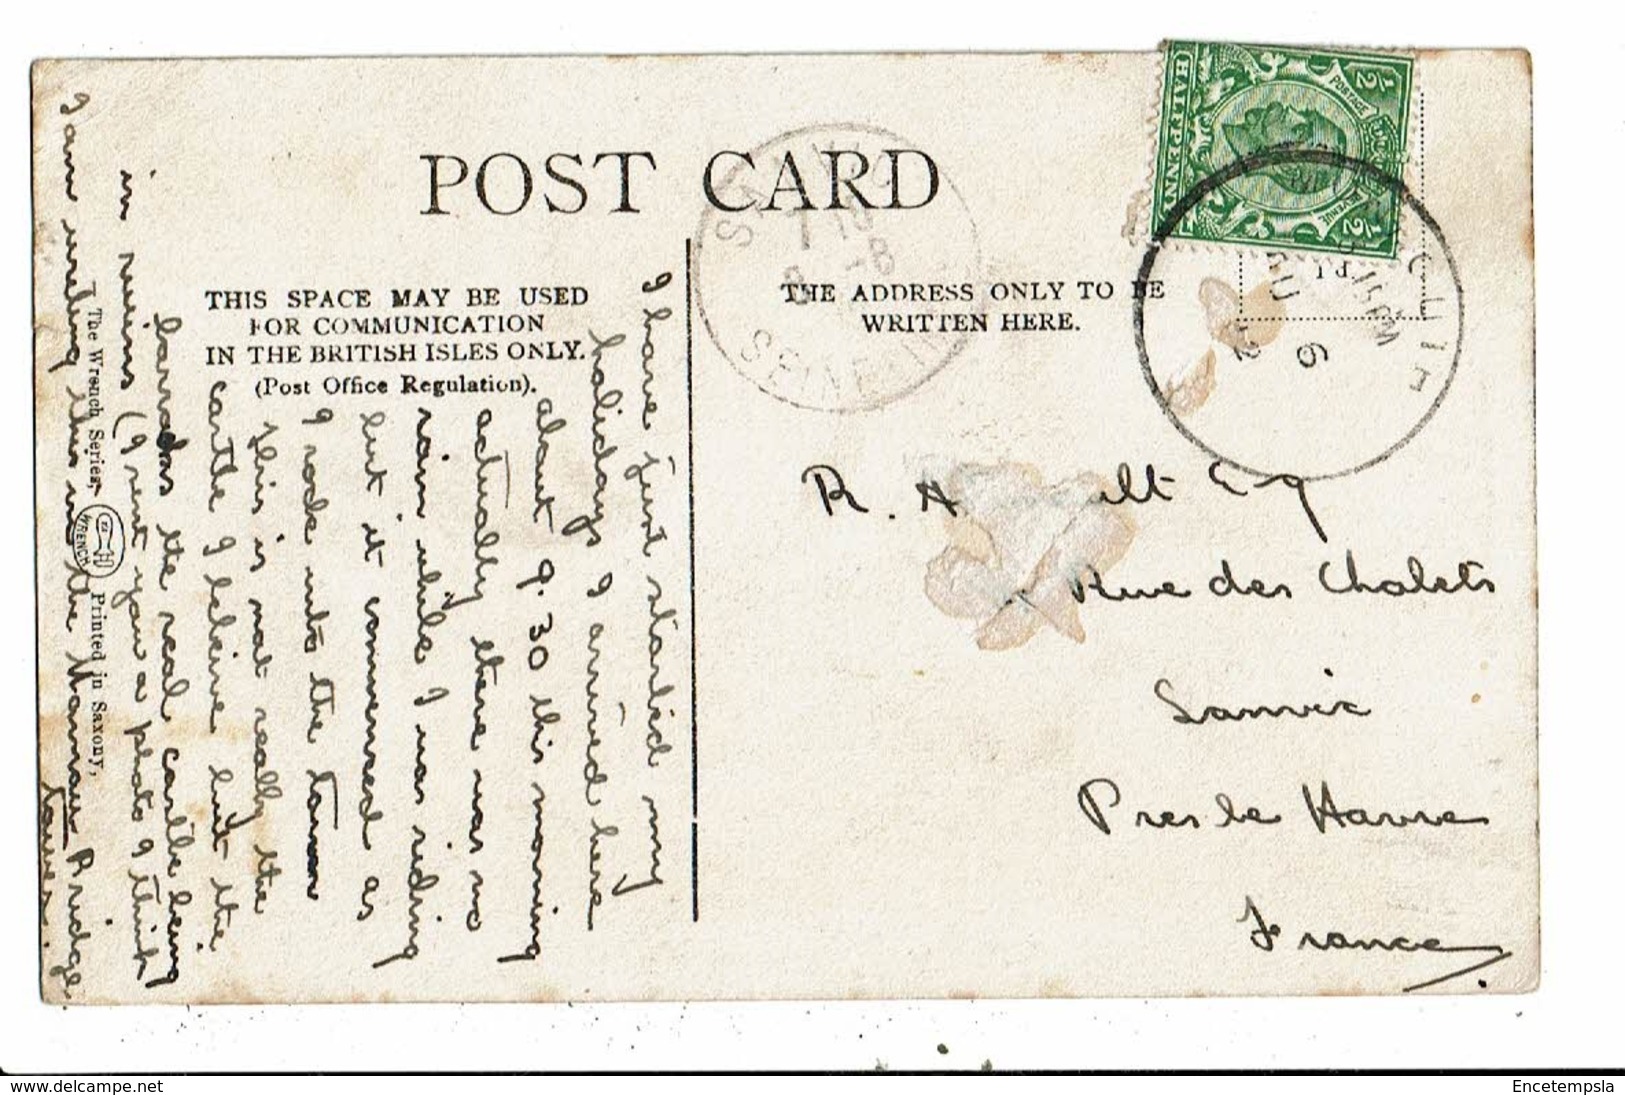 POST CARD
THIS SPACE MAY BE USED
FOR COMMUNICATION
IN THE BRITISH ISLES ONLY.
(Post Office Regulation).
THE ADDRESS ONLY TO BE
WRITTEN HERE.
HALFPENNY
POSTAGE
REVENUE
1/2
1/2
SEINE
6
12
I have just started my
holidays I arrived here
about 9.30 this morning
actually there was no
rain while I was riding
but it commenced as
I rode into the town
this is not really the
castle I believe but the
barracks the real castle being
in ruins (I sent you a photo I think
I am writing this in the Norman Bridge
tower.
The Wrench Series,
WRENCH
Printed in Saxony,
R. A ult Esq
Rue des Chalets
Sanvic
Pres le Havre
France
Encetempsla
www.delcampe.net